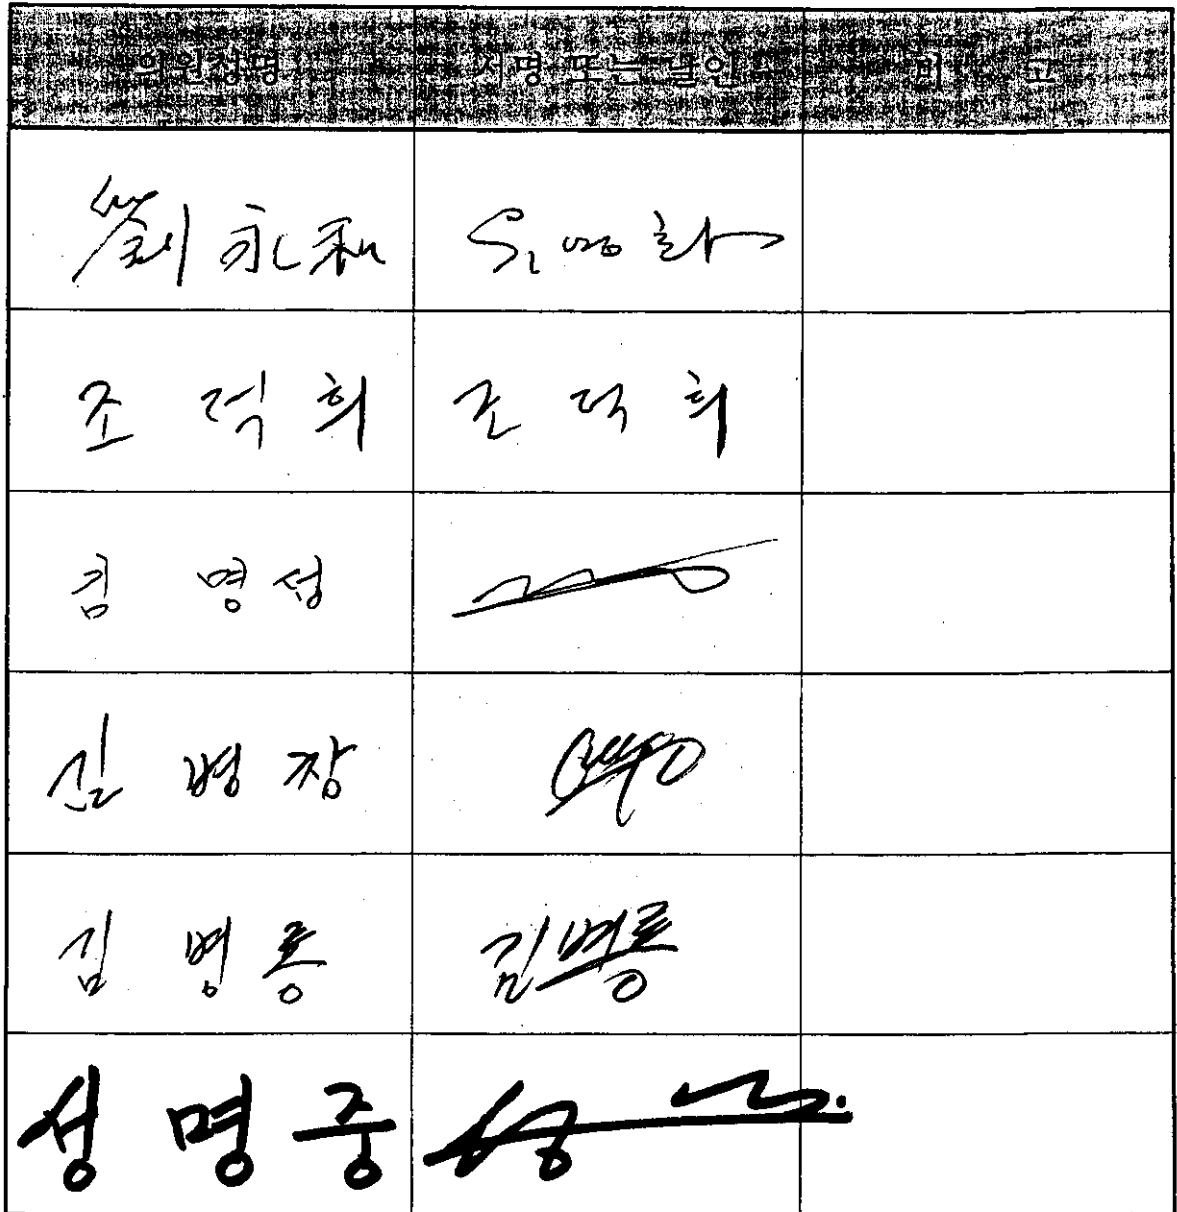 의원성명 서명 또는 날인 비 고
劉永和 유영화
조덕희 조덕희
김명성
길병장
김병룡 김병룡
성명중